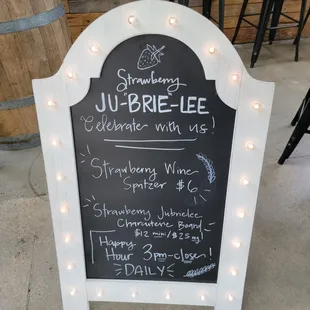 Strawberry
JU-BRIE-LEE
Celebrate with us!
Strawberry Wine
Spritzer $6
Strawberry Jubrielee
Charcuterie Board
$12 mini/$25 reg
Happy
Hour 3pm-close!
DAILY